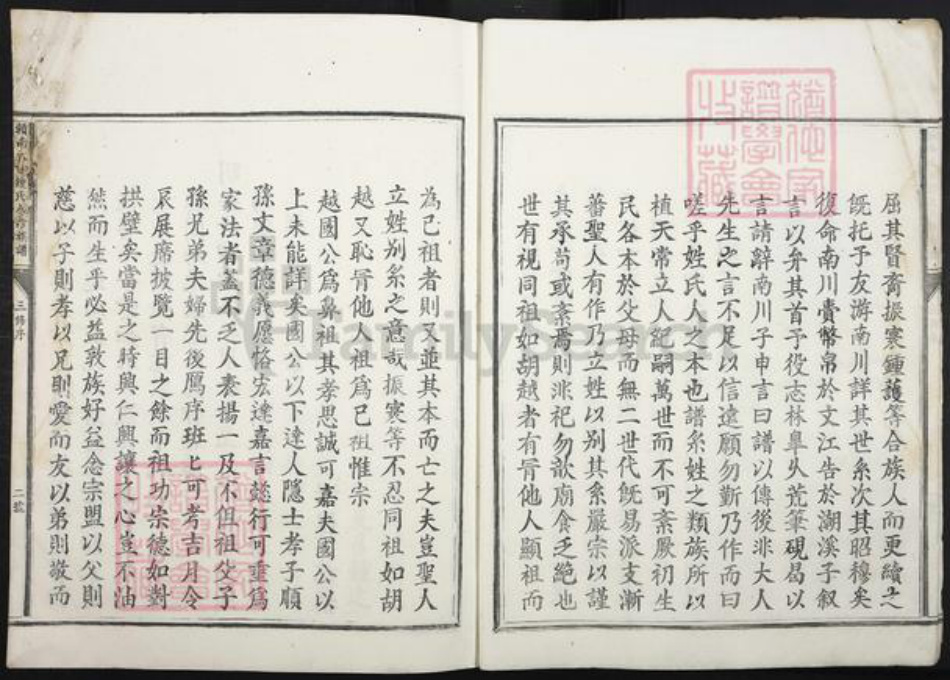 屈其賢裔振寰鍾護等合族人而更續之
旣托予友游南川詳其世系次其昭穆矣
復命南川賫幣帛於文江告於湖溪子叙
言以弁其首予役志林臯久荒筆硯曷以
言請辭南川子申言曰譜以傳後非大人
先生之言不足以信遠願勿勤乃作而曰
嗟乎姓氏人之本也譜系姓之類族所以
植天常立人紀嗣萬世而不可紊厥初生
民各本於父母而無二世代旣易派支漸
蕃聖人有作乃立姓以別其系嚴宗以謹
其承苟或紊焉則非祀勿歆廟食乏絕也
世有視同祖如胡越者有胥他人顯祖而
為己祖者則又並其本而亡之夫豈聖人
立姓別系之意哉振寰等不忍同祖如胡
越又恥胥他人祖爲已祖惟宗
越國公爲鼻祖其孝思誠可嘉夫國公以
上未能詳矣國公以下達人隱士孝子順
孫文章德義愿恪宏達嘉言懿行可垂爲
家法者蓋不乏人表揚一及不但祖父子
孫兄弟夫婦先後鴈序班匕可考吉月令
辰展席披覽一目之餘而祖功宗德如對
拱璧矣當是之時興仁興讓之心豈不油
然而生乎必益敦族好益念宗盟以父則
慈以子則孝以兄則愛而友以弟則敬而
三修序
二
FamilySearch